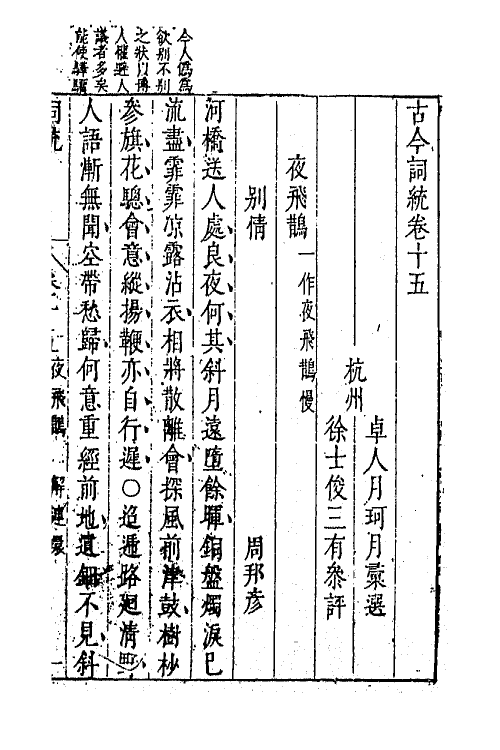 古今詞統卷十五
杭州
卓人月珂月彚選
徐士俊三有叅評
夜飛鵲 一作夜飛鵲慢
別情
周邦彥
河橋送人處良夜何其斜月遠墮餘暉銅盤燭淚已
流盡霏霏凉露沾衣相將散離會探風前津鼓樹杪
參旗花驄會意縱揚鞭亦自行遲○迢遞路廻淸野
人語漸無聞空帶愁歸何意重經前地遺鈿不見斜
今人僞爲
欲別不別
之狀以博
人催避人
議者多矣
能使驊騮
詞統 卷十五 夜飛鵲 解連環 一